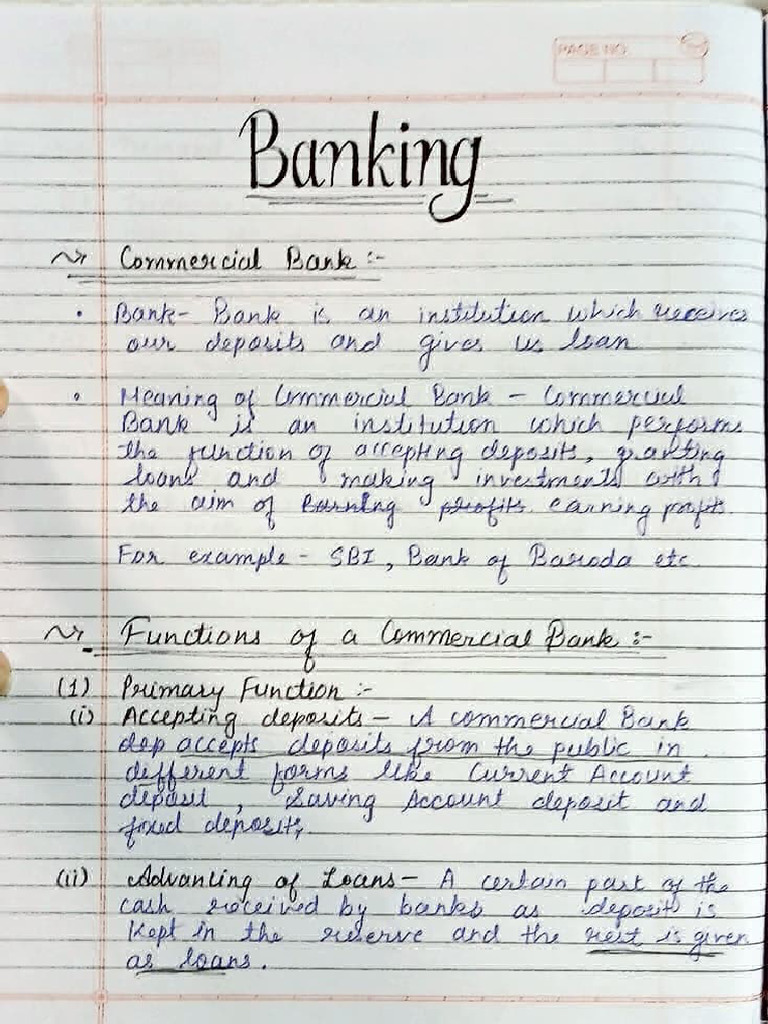 PAGE NO.
Banking
Commercial Bank :-
• Bank- Bank is an institution which receives
our deposits and gives us loan
• Meaning of Commercial Bank - Commercial
Bank is an institution which performs
the function of accepting deposits, granting
loans and making investments with
the aim of earning profits earning profit.
For example - SBI, Bank of Baroda etc
Functions of a Commercial Bank :-
(1) Primary Function :-
(i) Accepting deposits - A commercial Bank
dep accepts deposits from the public in
different forms like Current Account
deposit, Saving Account deposit and
fixed deposit,
(ii) Advancing of Loans - A certain part of the
cash received by banks as deposit is
Kept in the reserve and the rest is given
as loans.